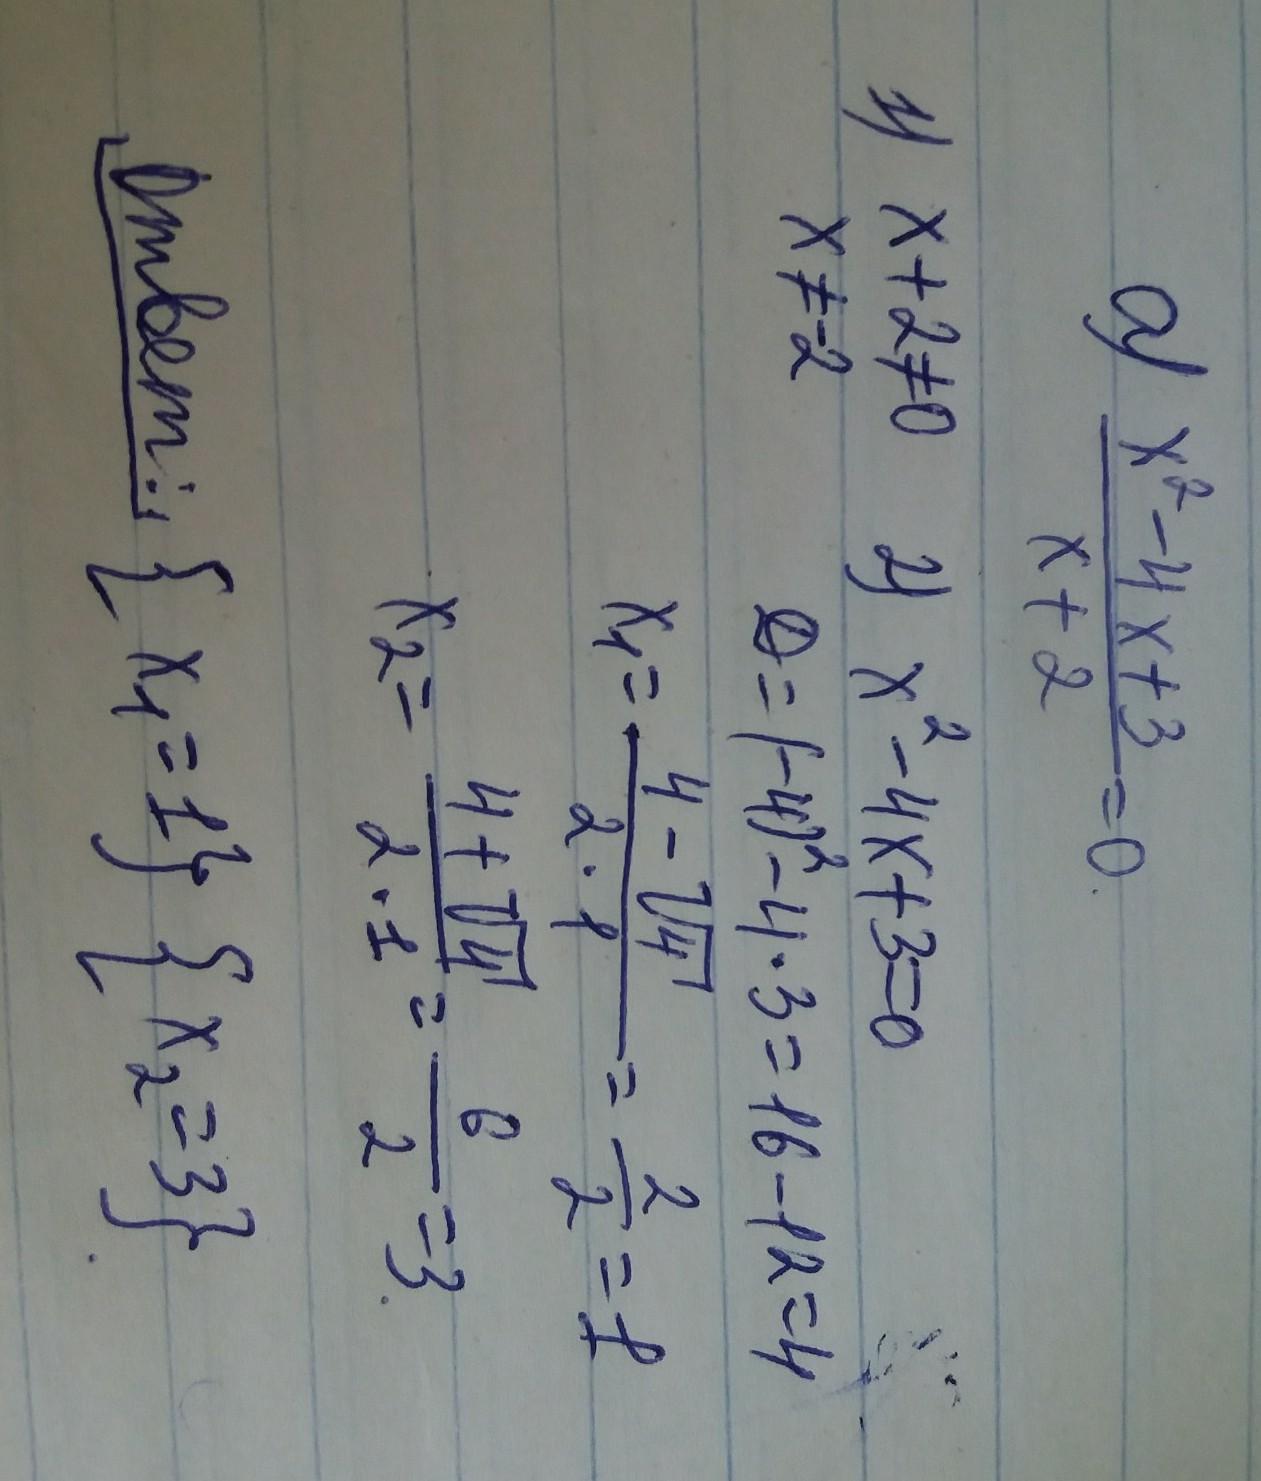 а) (x² - 4x + 3)/(x + 2) = 0.
1) x + 2 ≠ 0 2) x² - 4x + 3 = 0
x ≠ -2
D = (-4)² - 4 · 3 = 16 - 12 = 4
x₁ = (4 - √4)/(2 · 1) = 2/2 = 1
x₂ = (4 + √4)/(2 · 1) = 6/2 = 3.
Ответ: {x₁ = 1} {x₂ = 3}.